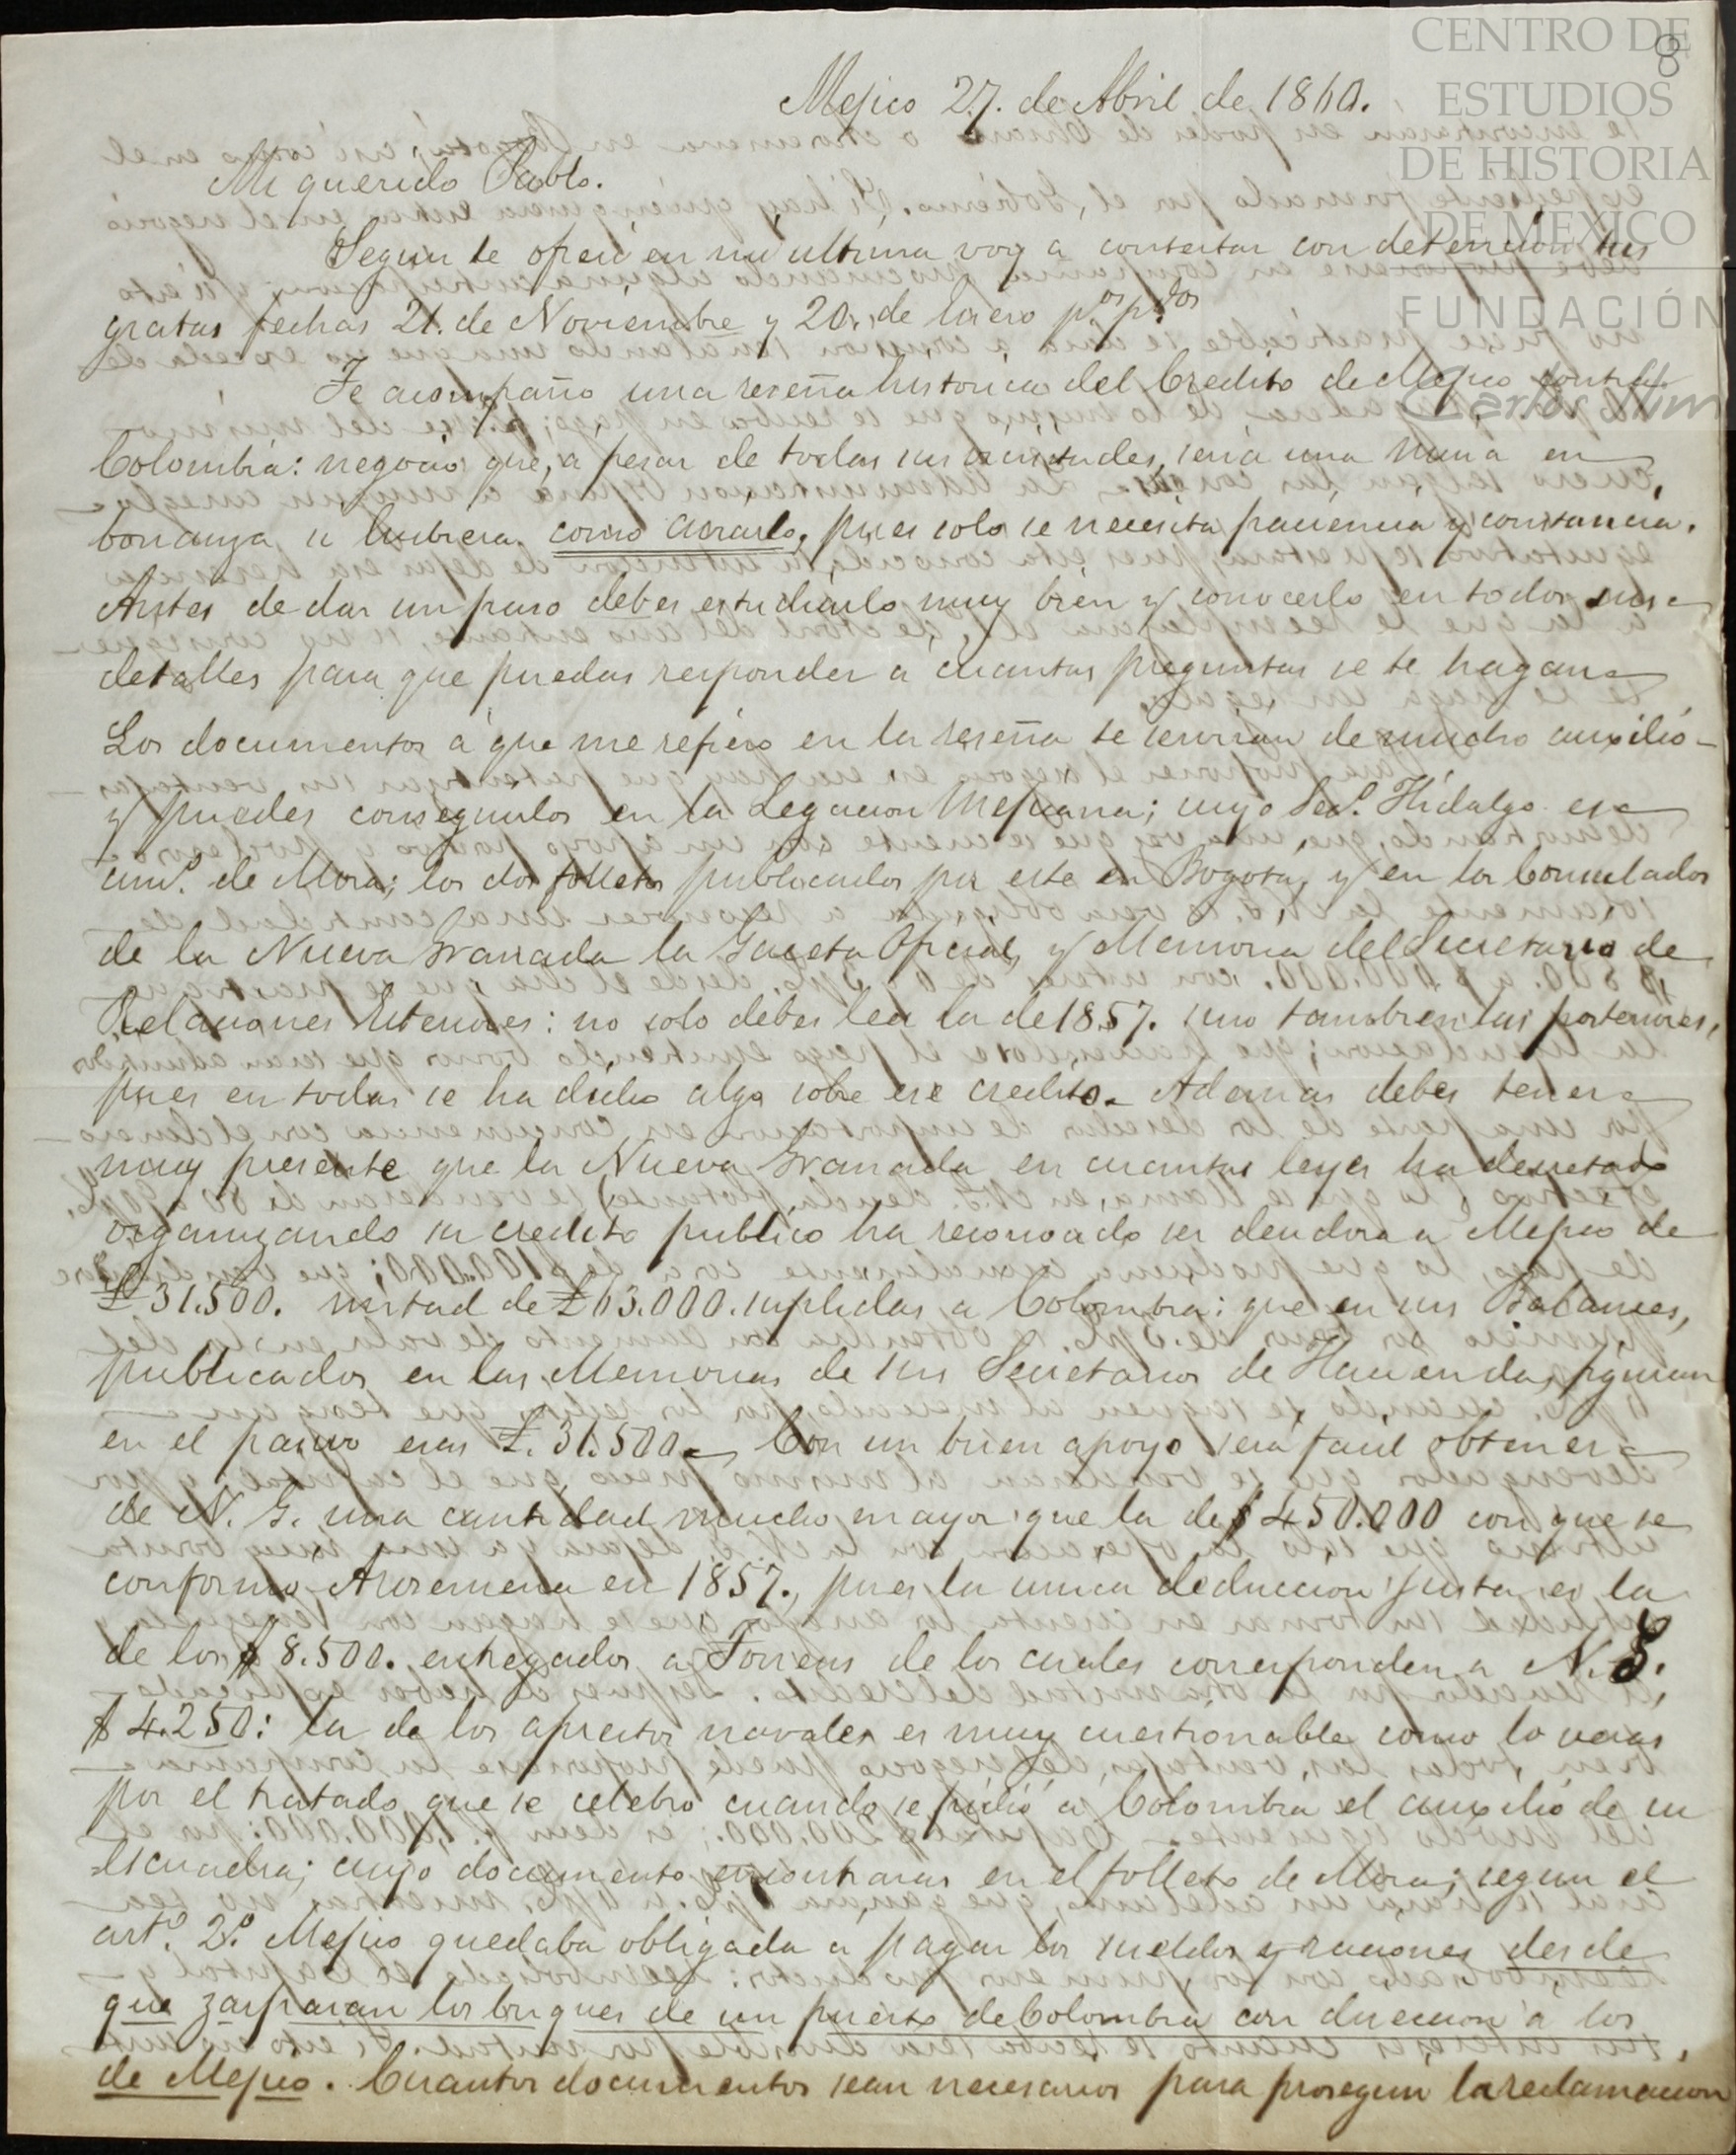 CENTRO DE
ESTUDIOS
DE HISTORIA
DE MEXICO
FUNDACIÓN
Carlos Slim
8
Mejico 27. de Abril de 1860.
Mi querido Pablo.
Segun te ofreci en mi ultima voy a contestar con detencion tus
gratas fechas 21. de Noviembre y 20. de Enero p.os p.dos
Te acompaño una reseña historica del Credito de Mejico contra
Colombia: negocio que, a pesar de todas sus vicisitudes, seria una mina en
bonanza si hubiera como acearlo, pues solo se necesita paciencia y constancia.
Antes de dar un paso debes estudiarlo muy bien y conocerlo en todos sus
detalles para que puedas responder a cuantas preguntas se te hagan
Los documentos á que me refiero en la reseña te serviran de mucho auxilio
y puedes conseguirlos en la Legacion Mejicana; cuyo Sec.º Hidalgo es
am.º de Mora; los dos folletos publicados por este en Bogota, y en los Consulados
de la Nueva Granada la Gaceta Oficial, y Memoria del Secretario de
Relaciones Esteriores: no solo debes leer la de 1857. sino tambien las posteriores,
pues en todas se ha dicho algo sobre ese credito. Ademas debes tener
muy presente que la Nueva Granada en cuantas leyes ha decretado
organizando su credito publico ha reconocido ser deudora a Mejico de
£ 31.500. mitad de £ 63.000. suplidas a Colombia: que en sus Balances,
publicados en las Memorias de sus Secretarios de Hacienda, figuran
en el pasivo esas £. 31.500. Con un buen apoyo será facil obtener
de N. G. una cantidad mucho mayor que la de $ 450.000 con que se
conformó Arosemena en 1857., pues la unica deduccion justa es la
de los $ 8.500. entregados a Torrens de los cuales corresponden a N. G.
$ 4.250: la de los aprestos navales es muy cuestionable como lo veras
por el tratado que se celebro cuando se pidió a Colombia el auxilio de su
escuadra; cuyo documento encontraras en el folleto de Mora; segun el
art.º 2.º Mejico quedaba obligada a pagar los sueldos y raciones desde
que zarparan los buques de un puerto de Colombia con direccion á los
de Mejico. Cuantos documentos sean necesarios para proseguir la reclamacion